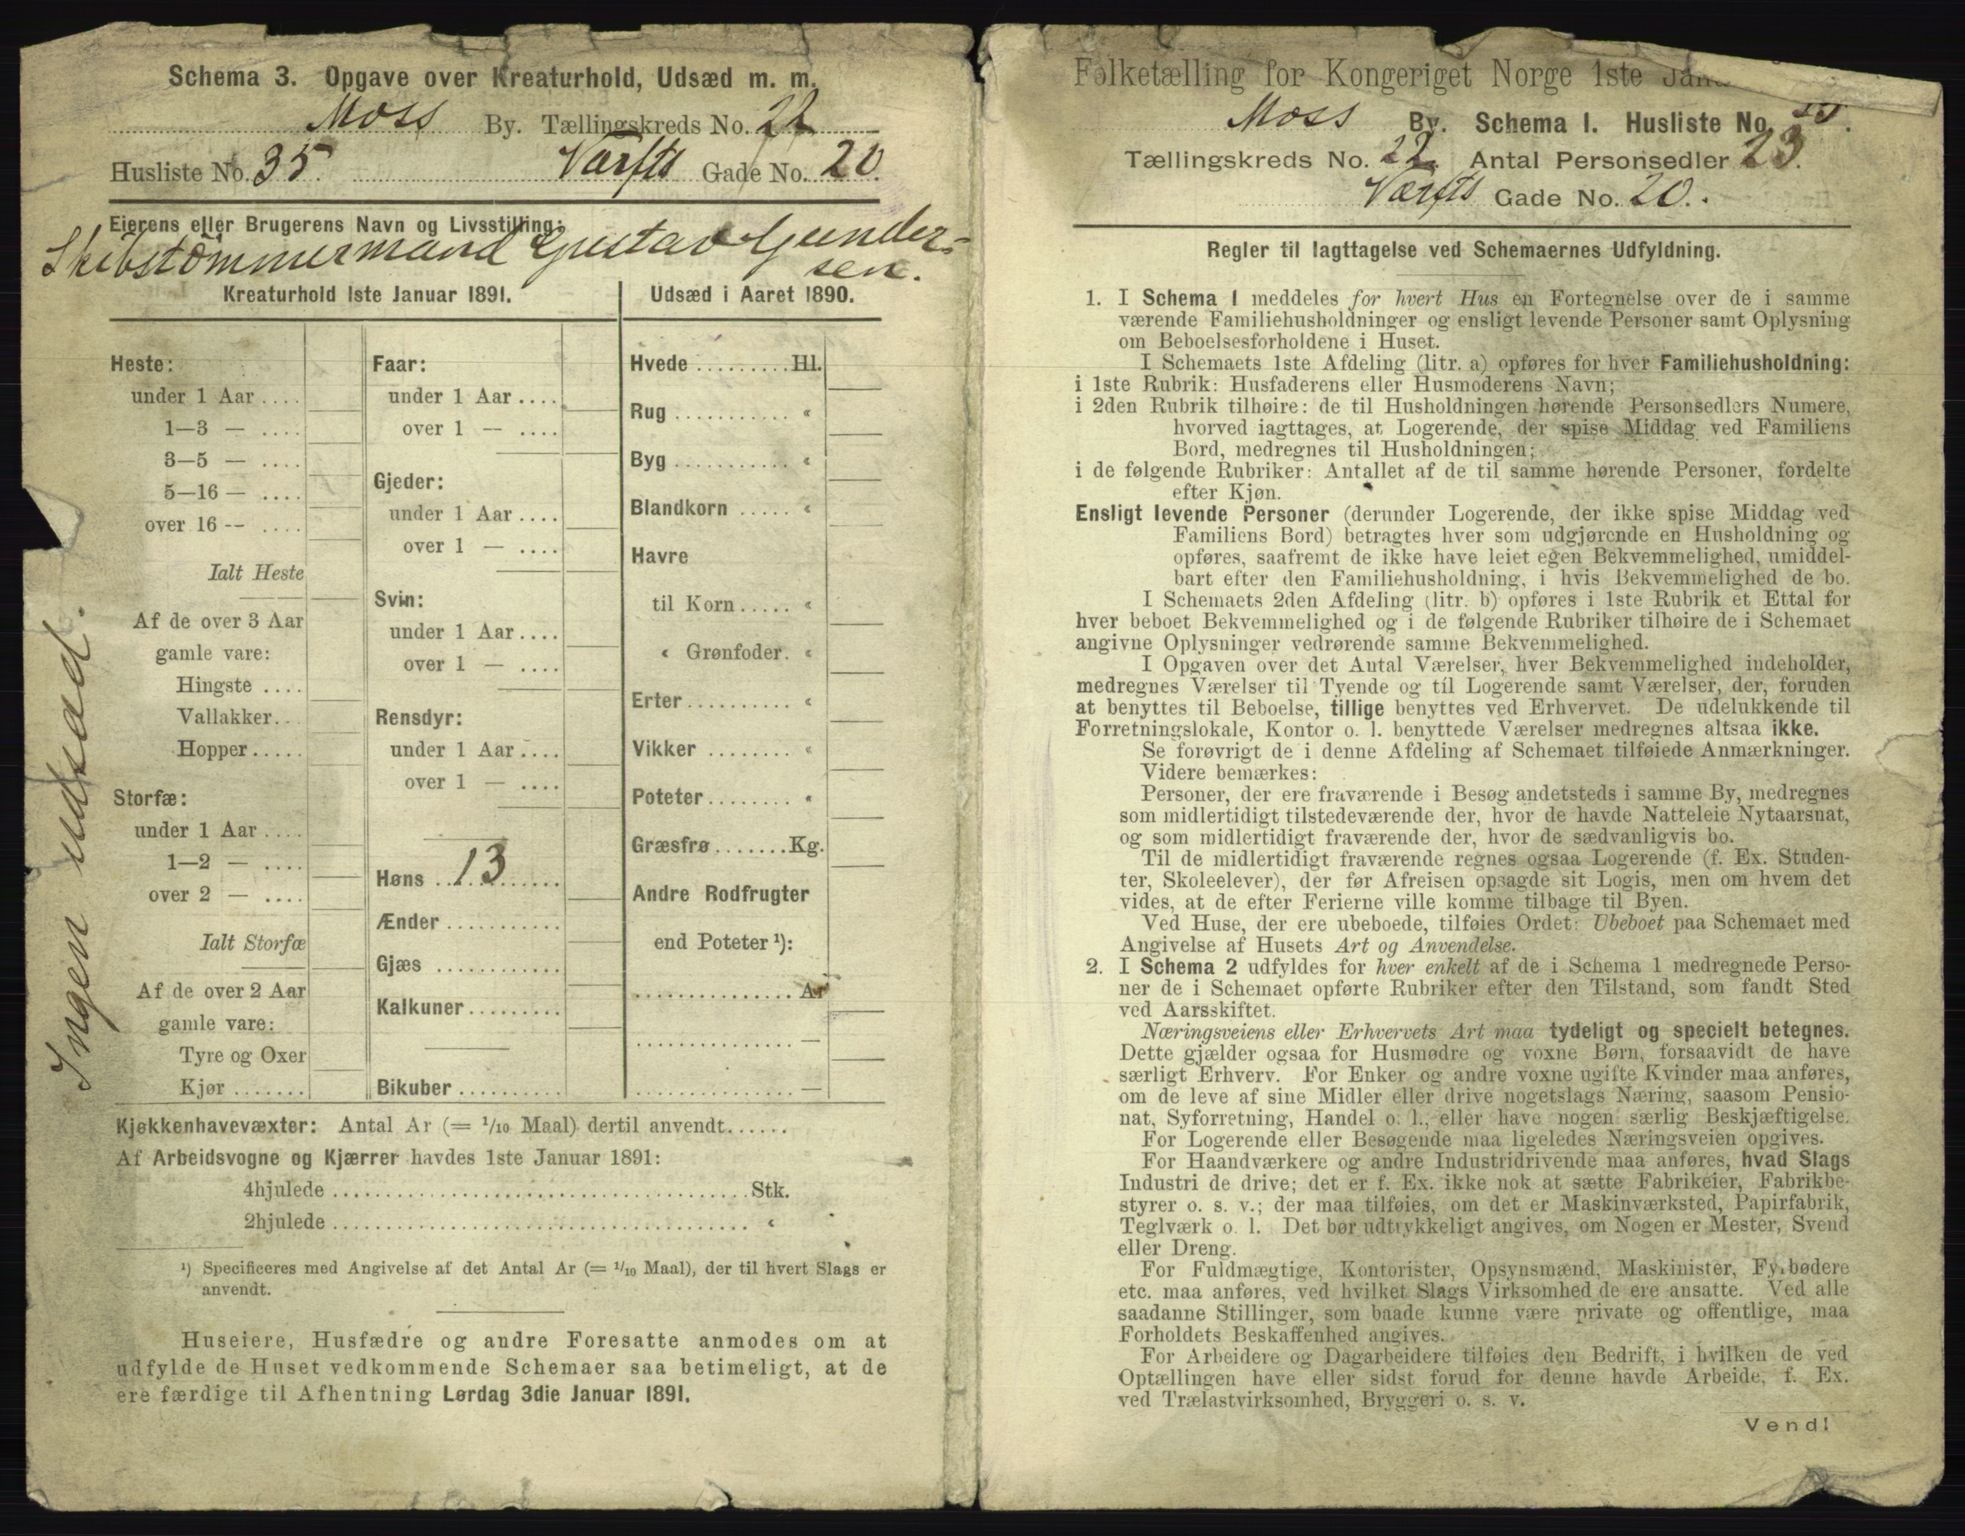 Schema 3. Opgave over Kreaturhold, Udsæd m. m.
Moss By. Tællingskreds No. 22
Husliste No. 35. Værfts Gade No. 20.
Eierens eller Brugerens Navn og Livsstilling:
Skibstømmermand Gustav Gunder-
sen.
Kreaturhold 1ste Januar 1891.
Udsæd i Aaret 1890.
Heste:
under 1 Aar ....
1—3 — ....
3—5 — ....
5—16 — ....
over 16 -- ....
Ialt Heste
Af de over 3 Aar
gamle vare:
Hingste ....
Vallakker...
Hopper.....
Storfæ:
under 1 Aar ....
1—2 — ....
over 2 — ....
Ialt Storfæ
Af de over 2 Aar
gamle vare:
Tyre og Oxer
Kjør .......
Faar:
under 1 Aar ....
over 1 — ....
Gjeder:
under 1 Aar ....
over 1 — ....
Svin:
under 1 Aar ....
over 1 — ....
Rensdyr:
under 1 Aar ....
over 1 — ....
Høns 13
Ænder ...........
Gjæs ............
Kalkuner.........
Bikuber ..........
Hvede ......... Hl.
Rug ........... «
Byg ........... «
Blandkorn ..... «
Havre
til Korn ..... «
« Grønfoder. «
Erter ......... «
Vikker ........ «
Poteter ....... «
Græsfrø ....... Kg.
Andre Rodfrugter
end Poteter ¹):
............... Ar
............... —
............... —
Ingen udsæd.
Kjøkkenhavevæxter: Antal Ar (= 1/10 Maal) dertil anvendt......
Af Arbeidsvogne og Kjærrer havdes 1ste Januar 1891:
4hjulede ........................................ Stk.
2hjulede ........................................ «
¹) Specificeres med Angivelse af det Antal Ar (= 1/10 Maal), der til hvert Slags er
anvendt.
Huseiere, Husfædre og andre Foresatte anmodes om at
udfylde de Huset vedkommende Schemaer saa betimeligt, at de
ere færdige til Afhentning Lørdag 3die Januar 1891.
Folketælling for Kongeriget Norge 1ste
Moss By. Schema I. Husliste No. 35.
Tællingskreds No. 22. Antal Personsedler 23.
Værfts Gade No. 20.
Regler til Iagttagelse ved Schemaernes Udfyldning.
1. I Schema I meddeles for hvert Hus en Fortegnelse over de i samme
værende Familiehusholdninger og ensligt levende Personer samt Oplysning
om Beboelsesforholdene i Huset.
I Schemaets 1ste Afdeling (litr. a) opføres for hver Familiehusholdning:
i 1ste Rubrik: Husfaderens eller Husmoderens Navn;
i 2den Rubrik tilhøire: de til Husholdningen hørende Personsedlers Numere,
hvorved iagttages, at Logerende, der spise Middag ved Familiens
Bord, medregnes til Husholdningen;
i de følgende Rubriker: Antallet af de til samme hørende Personer, fordelte
efter Kjøn.
Ensligt levende Personer (derunder Logerende, der ikke spise Middag ved
Familiens Bord) betragtes hver som udgjørende en Husholdning og
opføres, saafremt de ikke have leiet egen Bekvemmelighed, umiddel-
bart efter den Familiehusholdning, i hvis Bekvemmelighed de bo.
I Schemaets 2den Afdeling (litr. b) opføres i 1ste Rubrik et Ettal for
hver beboet Bekvemmelighed og i de følgende Rubriker tilhøire de i Schemaet
angivne Oplysninger vedrørende samme Bekvemmelighed.
I Opgaven over det Antal Værelser, hver Bekvemmelighed indeholder,
medregnes Værelser til Tyende og til Logerende samt Værelser, der, foruden
at benyttes til Beboelse, tillige benyttes ved Erhvervet. De udelukkende til
Forretningslokale, Kontor o. l. benyttede Værelser medregnes altsaa ikke.
Se forøvrigt de i denne Afdeling af Schemaet tilføiede Anmærkninger.
Videre bemærkes:
Personer, der ere fraværende i Besøg andetsteds i samme By, medregnes
som midlertidigt tilstedeværende der, hvor de havde Natteleie Nytaarsnat,
og som midlertidigt fraværende der, hvor de sædvanligvis bo.
Til de midlertidigt fraværende regnes ogsaa Logerende (f. Ex. Studen-
ter, Skoleelever), der før Afreisen opsagde sit Logis, men om hvem det
vides, at de efter Ferierne ville komme tilbage til Byen.
Ved Huse, der ere ubeboede, tilføies Ordet: Ubeboet paa Schemaet med
Angivelse af Husets Art og Anvendelse.
2. I Schema 2 udfyldes for hver enkelt af de i Schema 1 medregnede Perso-
ner de i Schemaet opførte Rubriker efter den Tilstand, som fandt Sted
ved Aarsskiftet.
Næringsveiens eller Erhvervets Art maa tydeligt og specielt betegnes.
Dette gjælder ogsaa for Husmødre og voxne Børn, forsaavidt de have
særligt Erhverv. For Enker og andre voxne ugifte Kvinder maa anføres,
om de leve af sine Midler eller drive nogetslags Næring, saasom Pensio-
nat, Syforretning, Handel o. l., eller have nogen særlig Beskjæftigelse.
For Logerende eller Besøgende maa ligeledes Næringsveien opgives.
For Haandværkere og andre Industridrivende maa anføres, hvad Slags
Industri de drive; det er f. Ex. ikke nok at sætte Fabrikeier, Fabrikbe-
styrer o. s. v.; der maa tilføies, om det er Maskinværksted, Papirfabrik,
Teglværk o. l. Det bør udtrykkeligt angives, om Nogen er Mester, Svend
eller Dreng.
For Fuldmægtige, Kontorister, Opsynsmænd, Maskinister, Fyrbødere
etc. maa anføres, ved hvilket Slags Virksomhed de ere ansatte. Ved alle
saadanne Stillinger, som baade kunne være private og offentlige, maa
Forholdets Beskaffenhed angives.
For Arbeidere og Dagarbeidere tilføies den Bedrift, i hvilken de ved
Optællingen have eller sidst forud for denne havde Arbeide, f. Ex.
ved Trælastvirksomhed, Bryggeri o. s. v.
Vend!